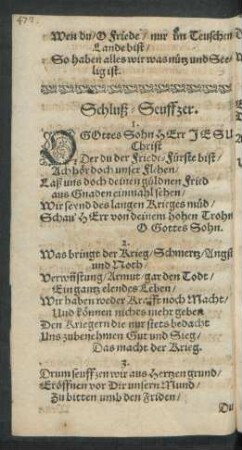 Wen du/ O Friede/ nur im Teuschen
Lande bist/
So haben alles wir was nütz und See-
lig ist.
Schluß-Seuffzer.
1.
O GOttes Sohn HErr JESU
Christ
Der du der Friede-Fürste bist/
Ach hör doch unser Flehen/
Laß uns doch deinen güldnen Fried
aus Gnaden einmahl sehen/
Wir seynd des langen Krieges müd/
Schau' HErr von deinem hohen Trohn
O Gottes Sohn.
2.
Was bringt der Krieg/ Schmertz/ Angst
und Noth
Verwüstung/ Armut/ gar den Todt/
Ein gantz elendes Leben/
Wir haben weder Krafft noch Macht/
Und können nichts mehr geben
Den Kriegern die nur stets bedacht
Uns zubenehmen Gut und Sieg/
Das macht der Krieg.
3.
Drum seuffzen wir aus Hertzen grund/
Eröffnen vor Dir unsern Mund/
Zu bitten umb den Friden/
Du